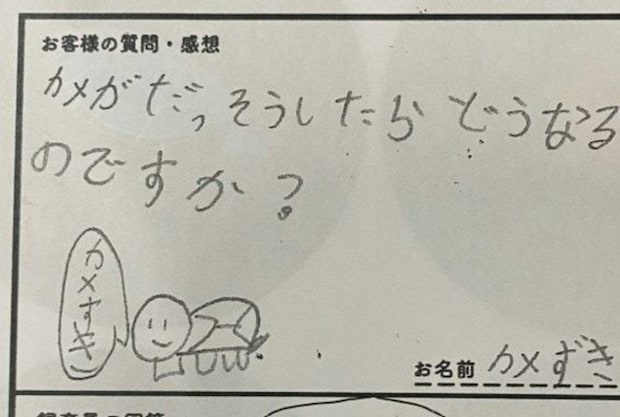 お客様の質問・感想
カメがだっそうしたらどうなる
のですか?
カメすき
お名前 カメずき